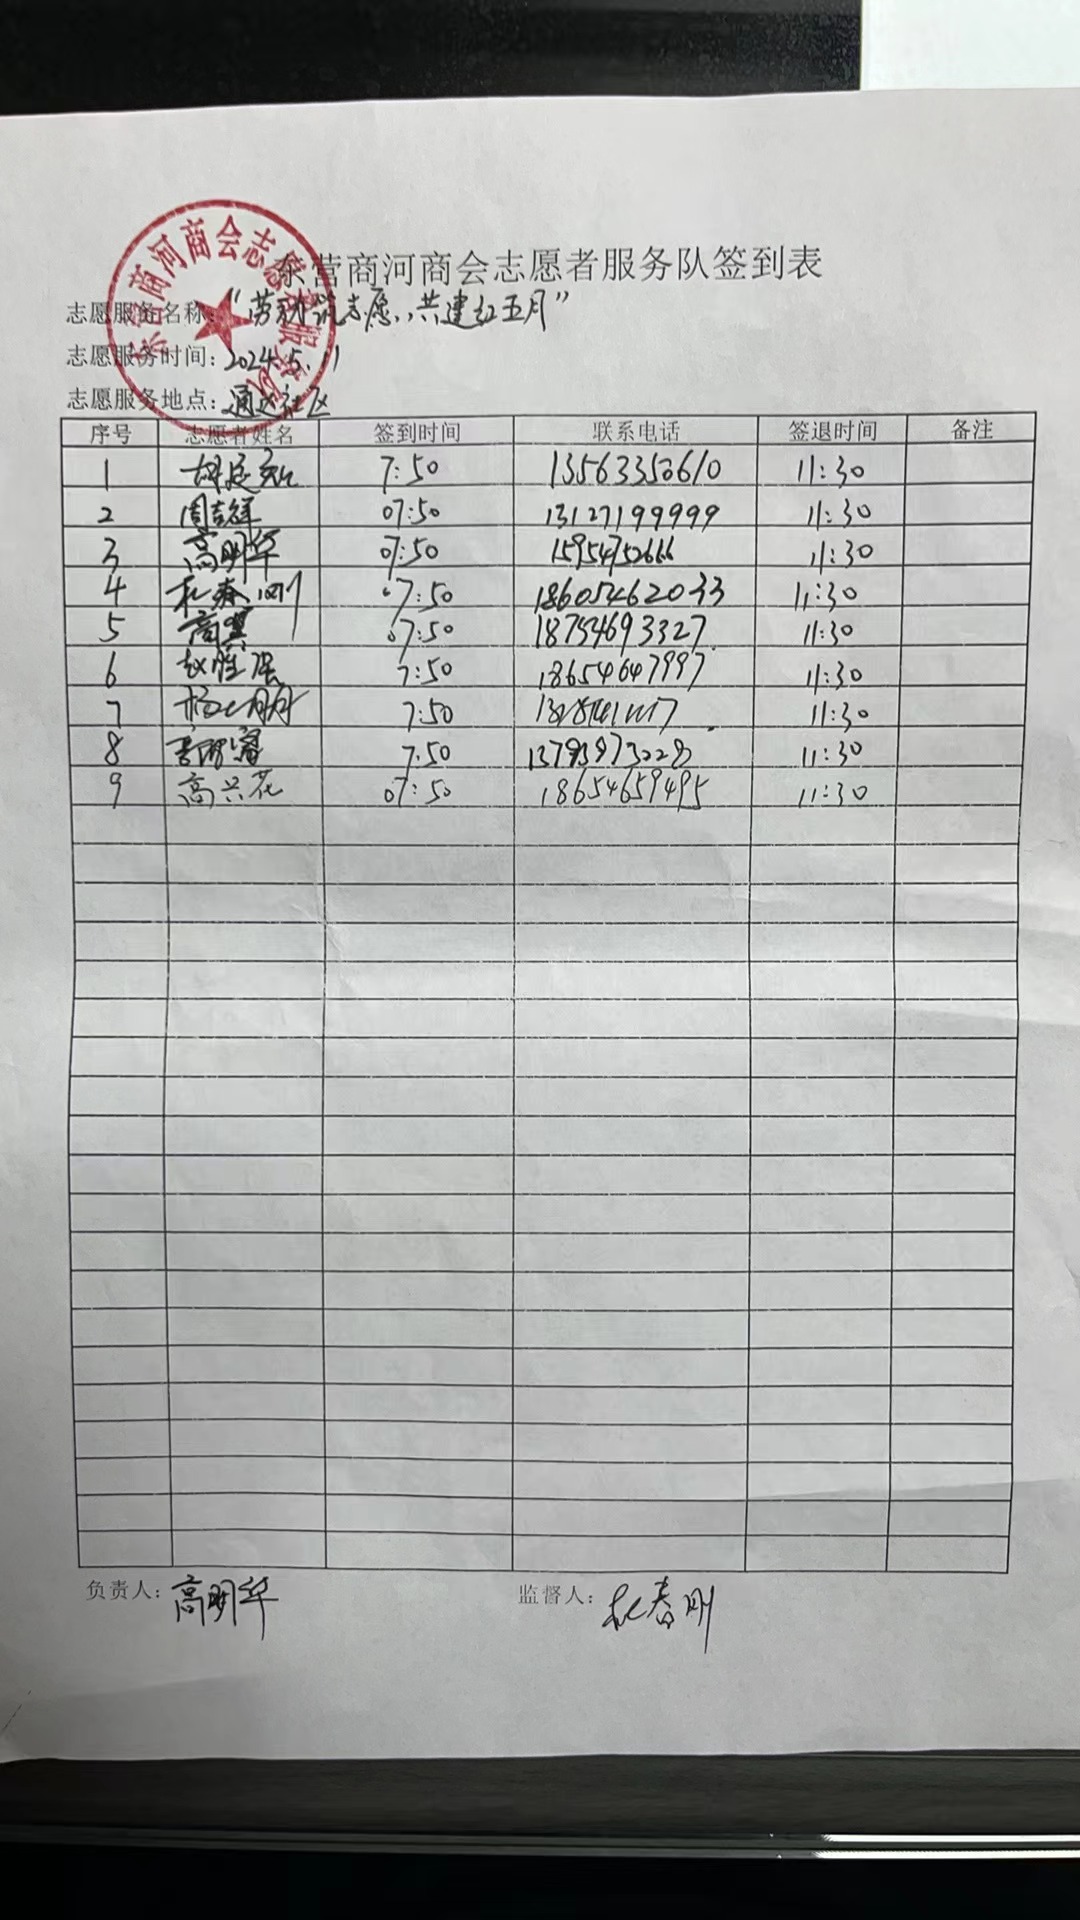 东营商河商会志愿者服务队
东营商河商会志愿者服务队签到表
志愿服务名称：“劳动筑志愿，共建红五月”
志愿服务时间：2024.5.11
志愿服务地点：通达社区
序号 志愿者姓名 签到时间 联系电话 签退时间 备注
1 7:50 13563350610 11:30
2 周吉祥 07:50 13127199999 11:30
3 高明华 07:50 15954752666 11:30
4 杜春刚 07:50 18605462033 11:30
5 高 07:50 18754693327 11:30
6 赵胜强 7:50 18654647997 11:30
7 杨明 7:50 11:30
8 7:50 13793973228 11:30
9 高兴花 07:50 18654659495 11:30
负责人：高明华 监督人：杜春刚